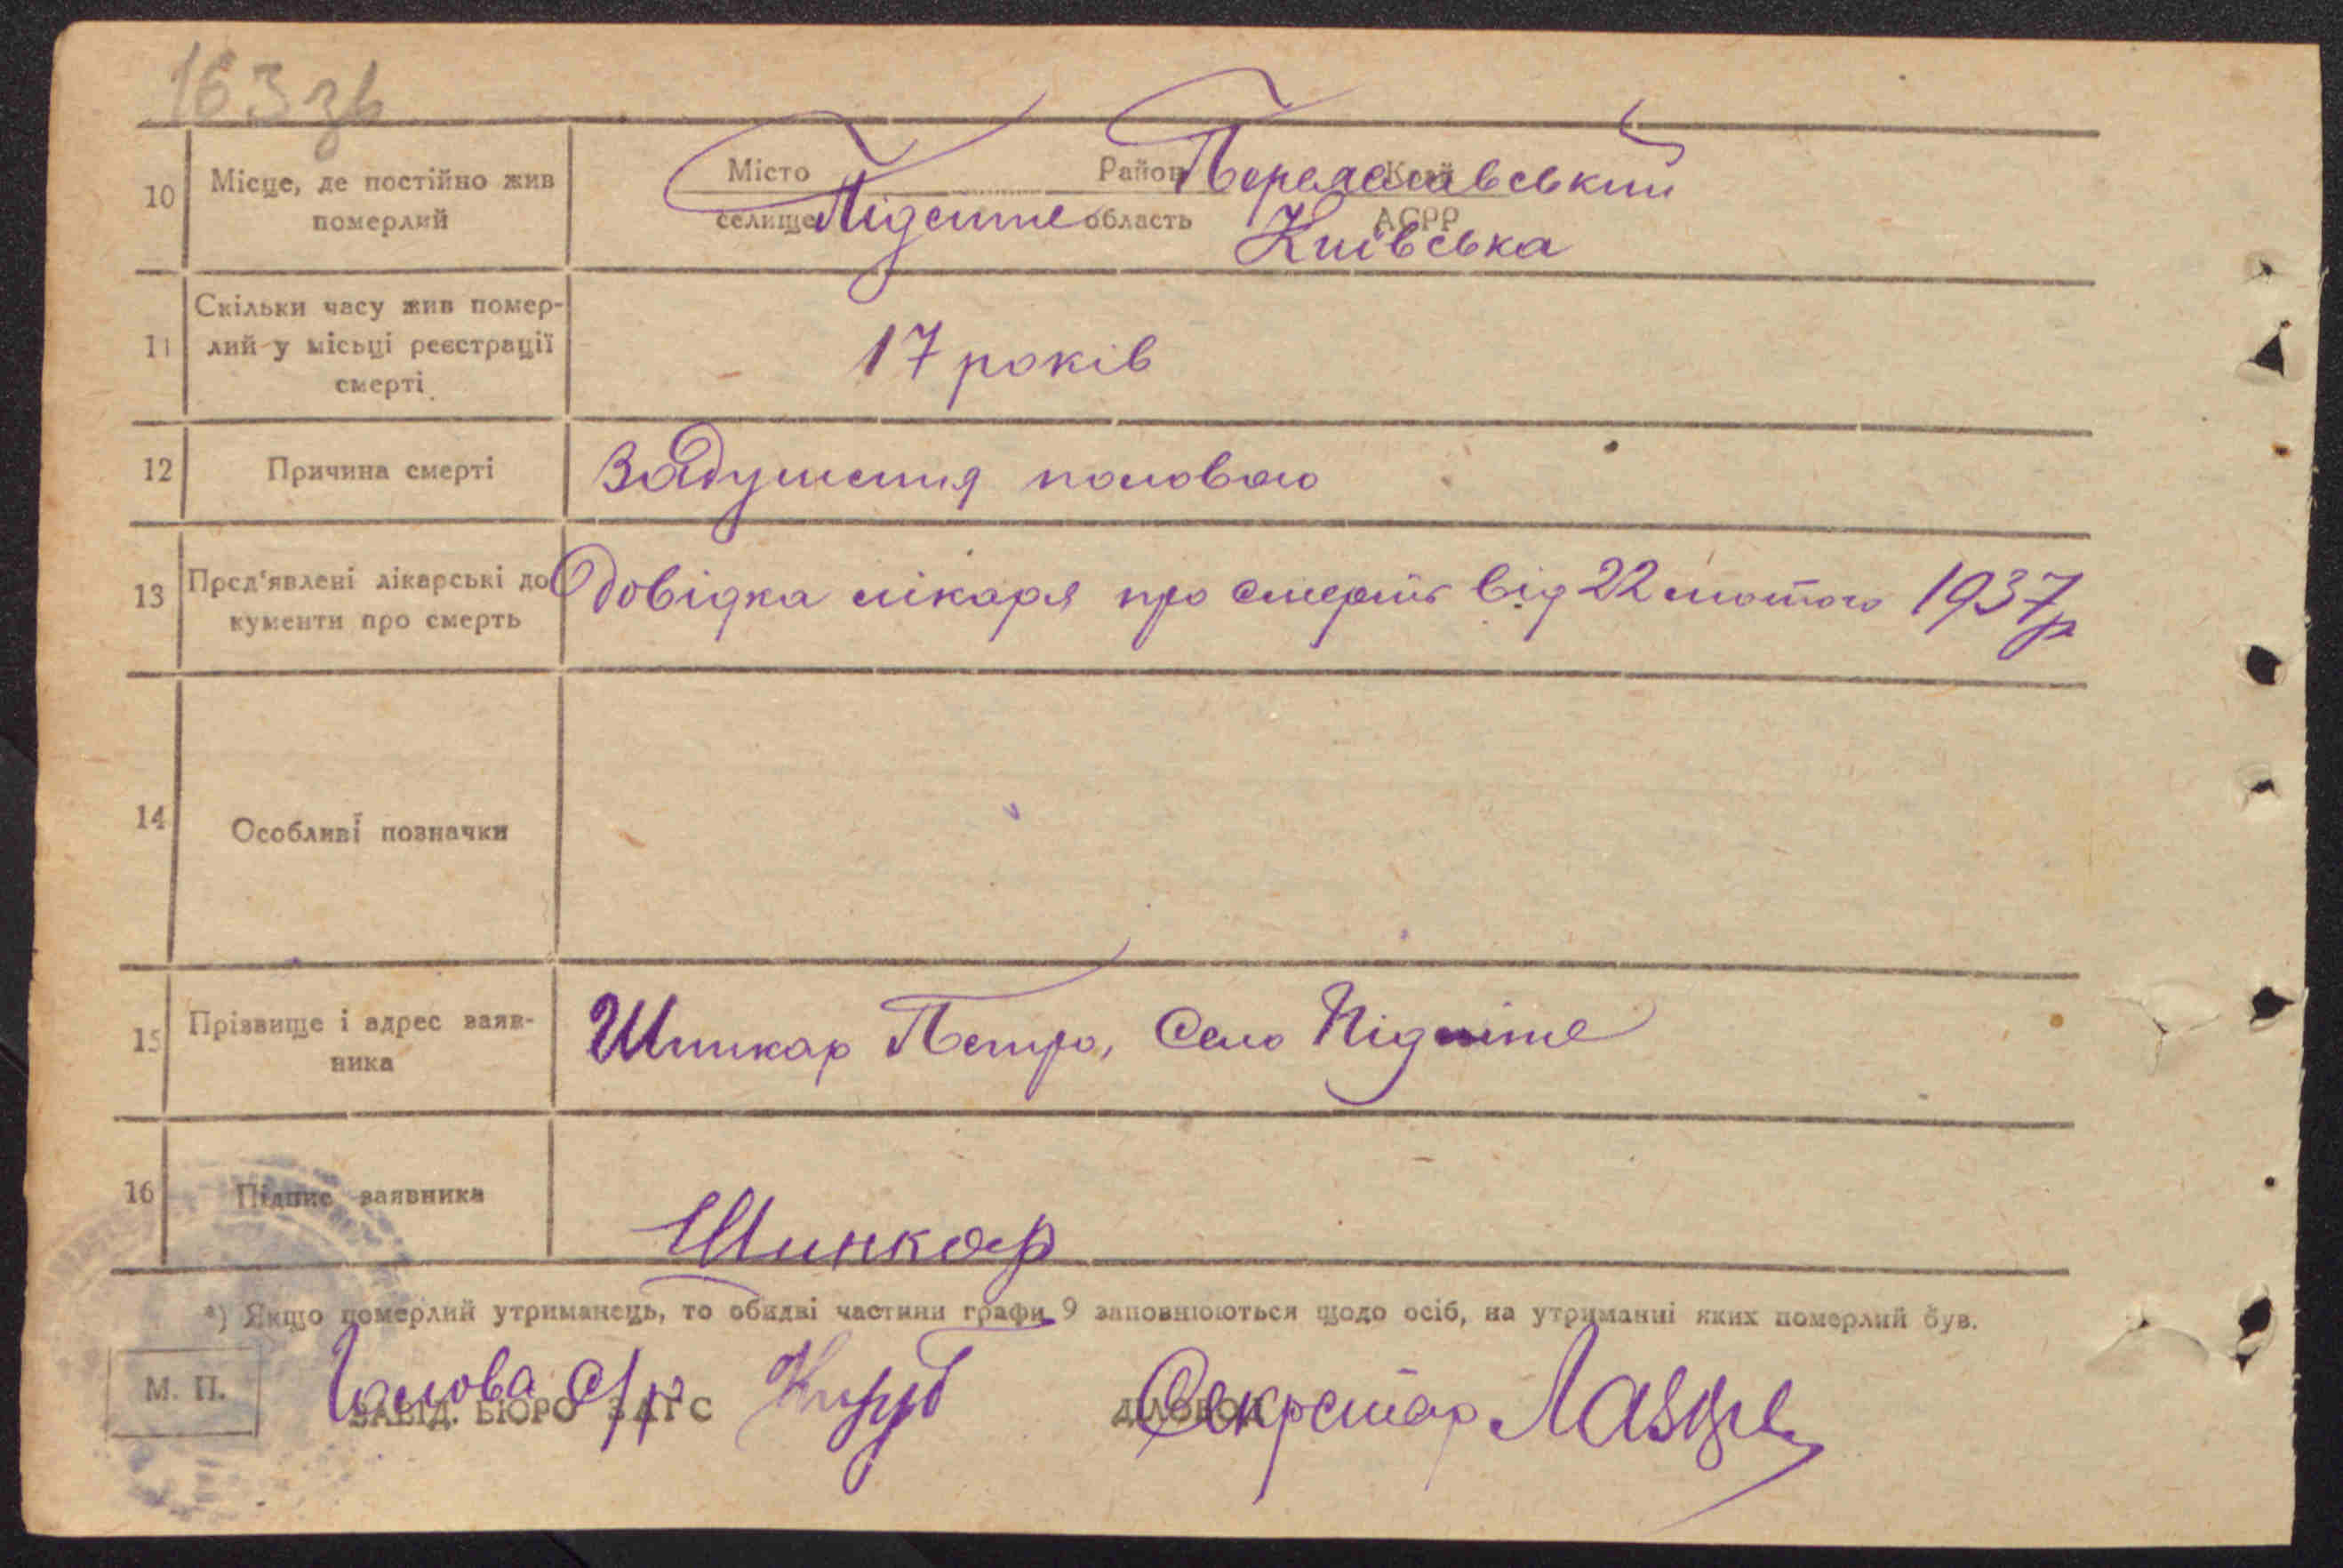 163 зв
10 Місце, де постійно жив померлий
Місто Район Переяславський Край
селище Підсінне область Київська АСРР
11 Скільки часу жив помер-
лий у місьці реєстрації
смерті
17 років
12 Причина смерті Задушення половою
13 Пред'явлені лікарські до
кументи про смерть
Довідка лікаря про смерть від 22 лютого 1937 р
14 Особливі позначки
15 Прізвище і адрес заяв-
ника
Шинкар Петро, село
16 Підпис заявника Шинкар
*) Якщо померлий утриманець, то обидві частини графи 9 заповнюються щодо осіб, на утриманні яких померлий був.
М. П. Голова с/р ЗАВІД. БЮРО ЗАГС ДІЛОВОД Секретар